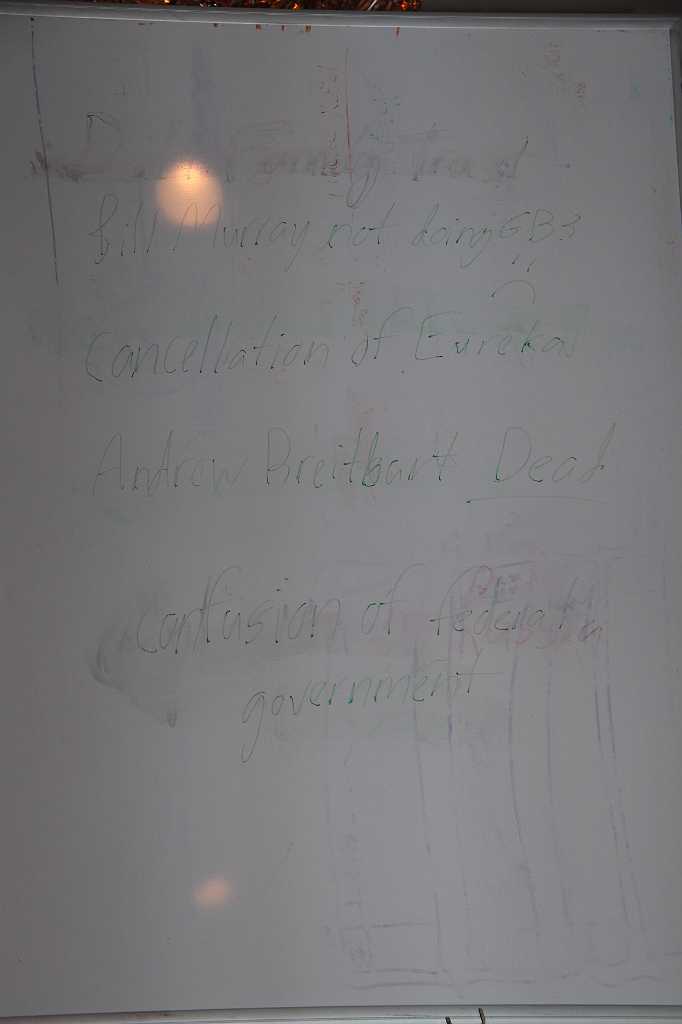 Bill Murray not doing GB3
Cancellation of Eureka
Andrew Breitbart Dead
Confusion of federal
government